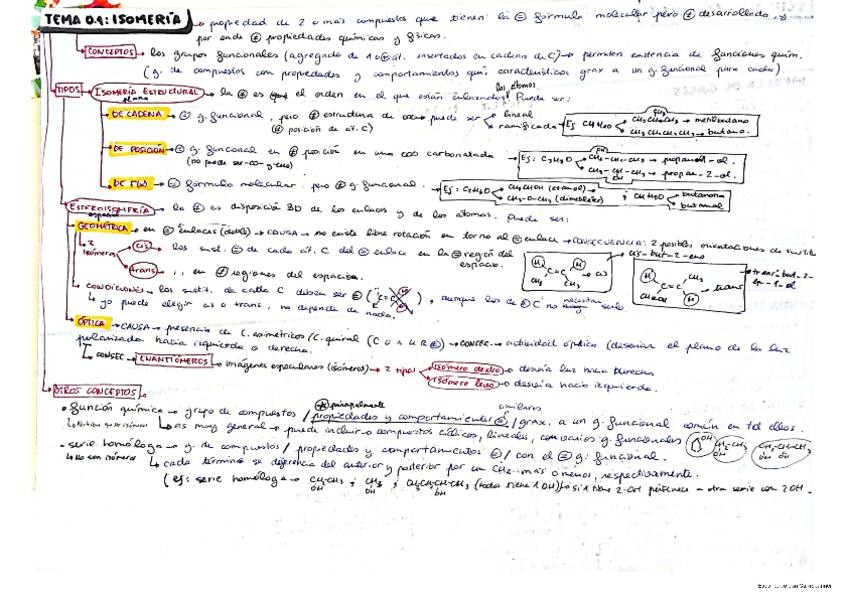 TEMA 0.4: ISOMERÍA → propiedad de 2 o más compuestos que tienen la = fórmula molecular pero ≠ desarrollada, y
por ende ≠ propiedades químicas y físicas.
CONCEPTOS → los grupos funcionales (agregado de 1 o at. insertados en cadena de C) → permiten existencia de funciones quím.
(g. de compuestos con propiedades y comportamientos quím. característicos grax a un g. funcional para cada)
TIPOS → ISOMERÍA ESTRUCTURAL → la ≠ es el orden en el que están enlazados los átomos. Puede ser:
plana
DE CADENA → = g. funcional, pero ≠ estructura de puede ser lineal
(≠ posición de at. C) ramificada Ej: C4H10 CH3 CH3CHCH3 → metilbutano
CH3CH2CH2CH3 → butano.
DE POSICIÓN → = g. funcional en ≠ posición en una carbonatada Ej: C3H8O → propan-1-ol.
(no puede ser -CO- y -CHO) OH → propan-2-ol.
DE → = fórmula molecular pero ≠ g. funcional. Ej: C2H6O CH3CH2OH (etanol) CH3-O-CH3 ; C4H8O butanona
butanal
ESTEREOISOMERÍA → la ≠ es disposición 3D de los enlaces y de los átomos. Puede ser:
espacial
GEOMÉTRICA → en = enlaces (dobles) → CAUSA → no existe libre rotación en torno al = enlace → CONSECUENCIA: 2 posibles orientaciones de sustit.
2 isómeros cis los sust. = de cada át. C del = enlace en la = región del espacio. cis-but-2-eno
H H C=C CH3 CH3 → cis
trans ,, en ≠ regiones del espacio. H CH3 C=C CH2OH H → trans trans-but-2-en-1-ol
CONDICIONES → los sustit. de cada C deben ser ≠ ( C=C H H ), aunque los de = C no necesitan serlo.
↳ yo puedo elegir cis o trans, no depende de nada.
ÓPTICA → CAUSA → presencia de C. asimétricos / C. quiral (C 4 R ≠) → CONSEC. → actividad óptica (desvían el plano de la luz
polarizada hacia izquierda o derecha.
CONSEC → ENANTIÓMEROS → imágenes especulares (isómeros) → 2 tipos isómero dextro → desvía luz hacia derecha
isómero levo → desvía hacia izquierda.
OTROS CONCEPTOS
• función química → grupo de compuestos / propiedades y comportamientos similares / grax. a un g. funcional común en tod ellos.
principalmente
↳ es muy general → puede incluir compuestos cíclicos, lineales, con varios g. funcionales OH CH2-CH3 OH CH2-CH-CH3 OH OH
• serie homóloga → g. de compuestos / propiedades y comportamientos = / con el = g. funcional.
↳ No son isómeros ↳ cada término se diferencia del anterior y posterior por un CH2 más o menos, respectivamente.
(ej: serie homóloga → CH2-CH3 OH ; CH3 OH ; CH2CH2CH3 OH (todos tiene 1 OH) si 1 tiene 2-OH pertenece → otra serie con 2 OH.